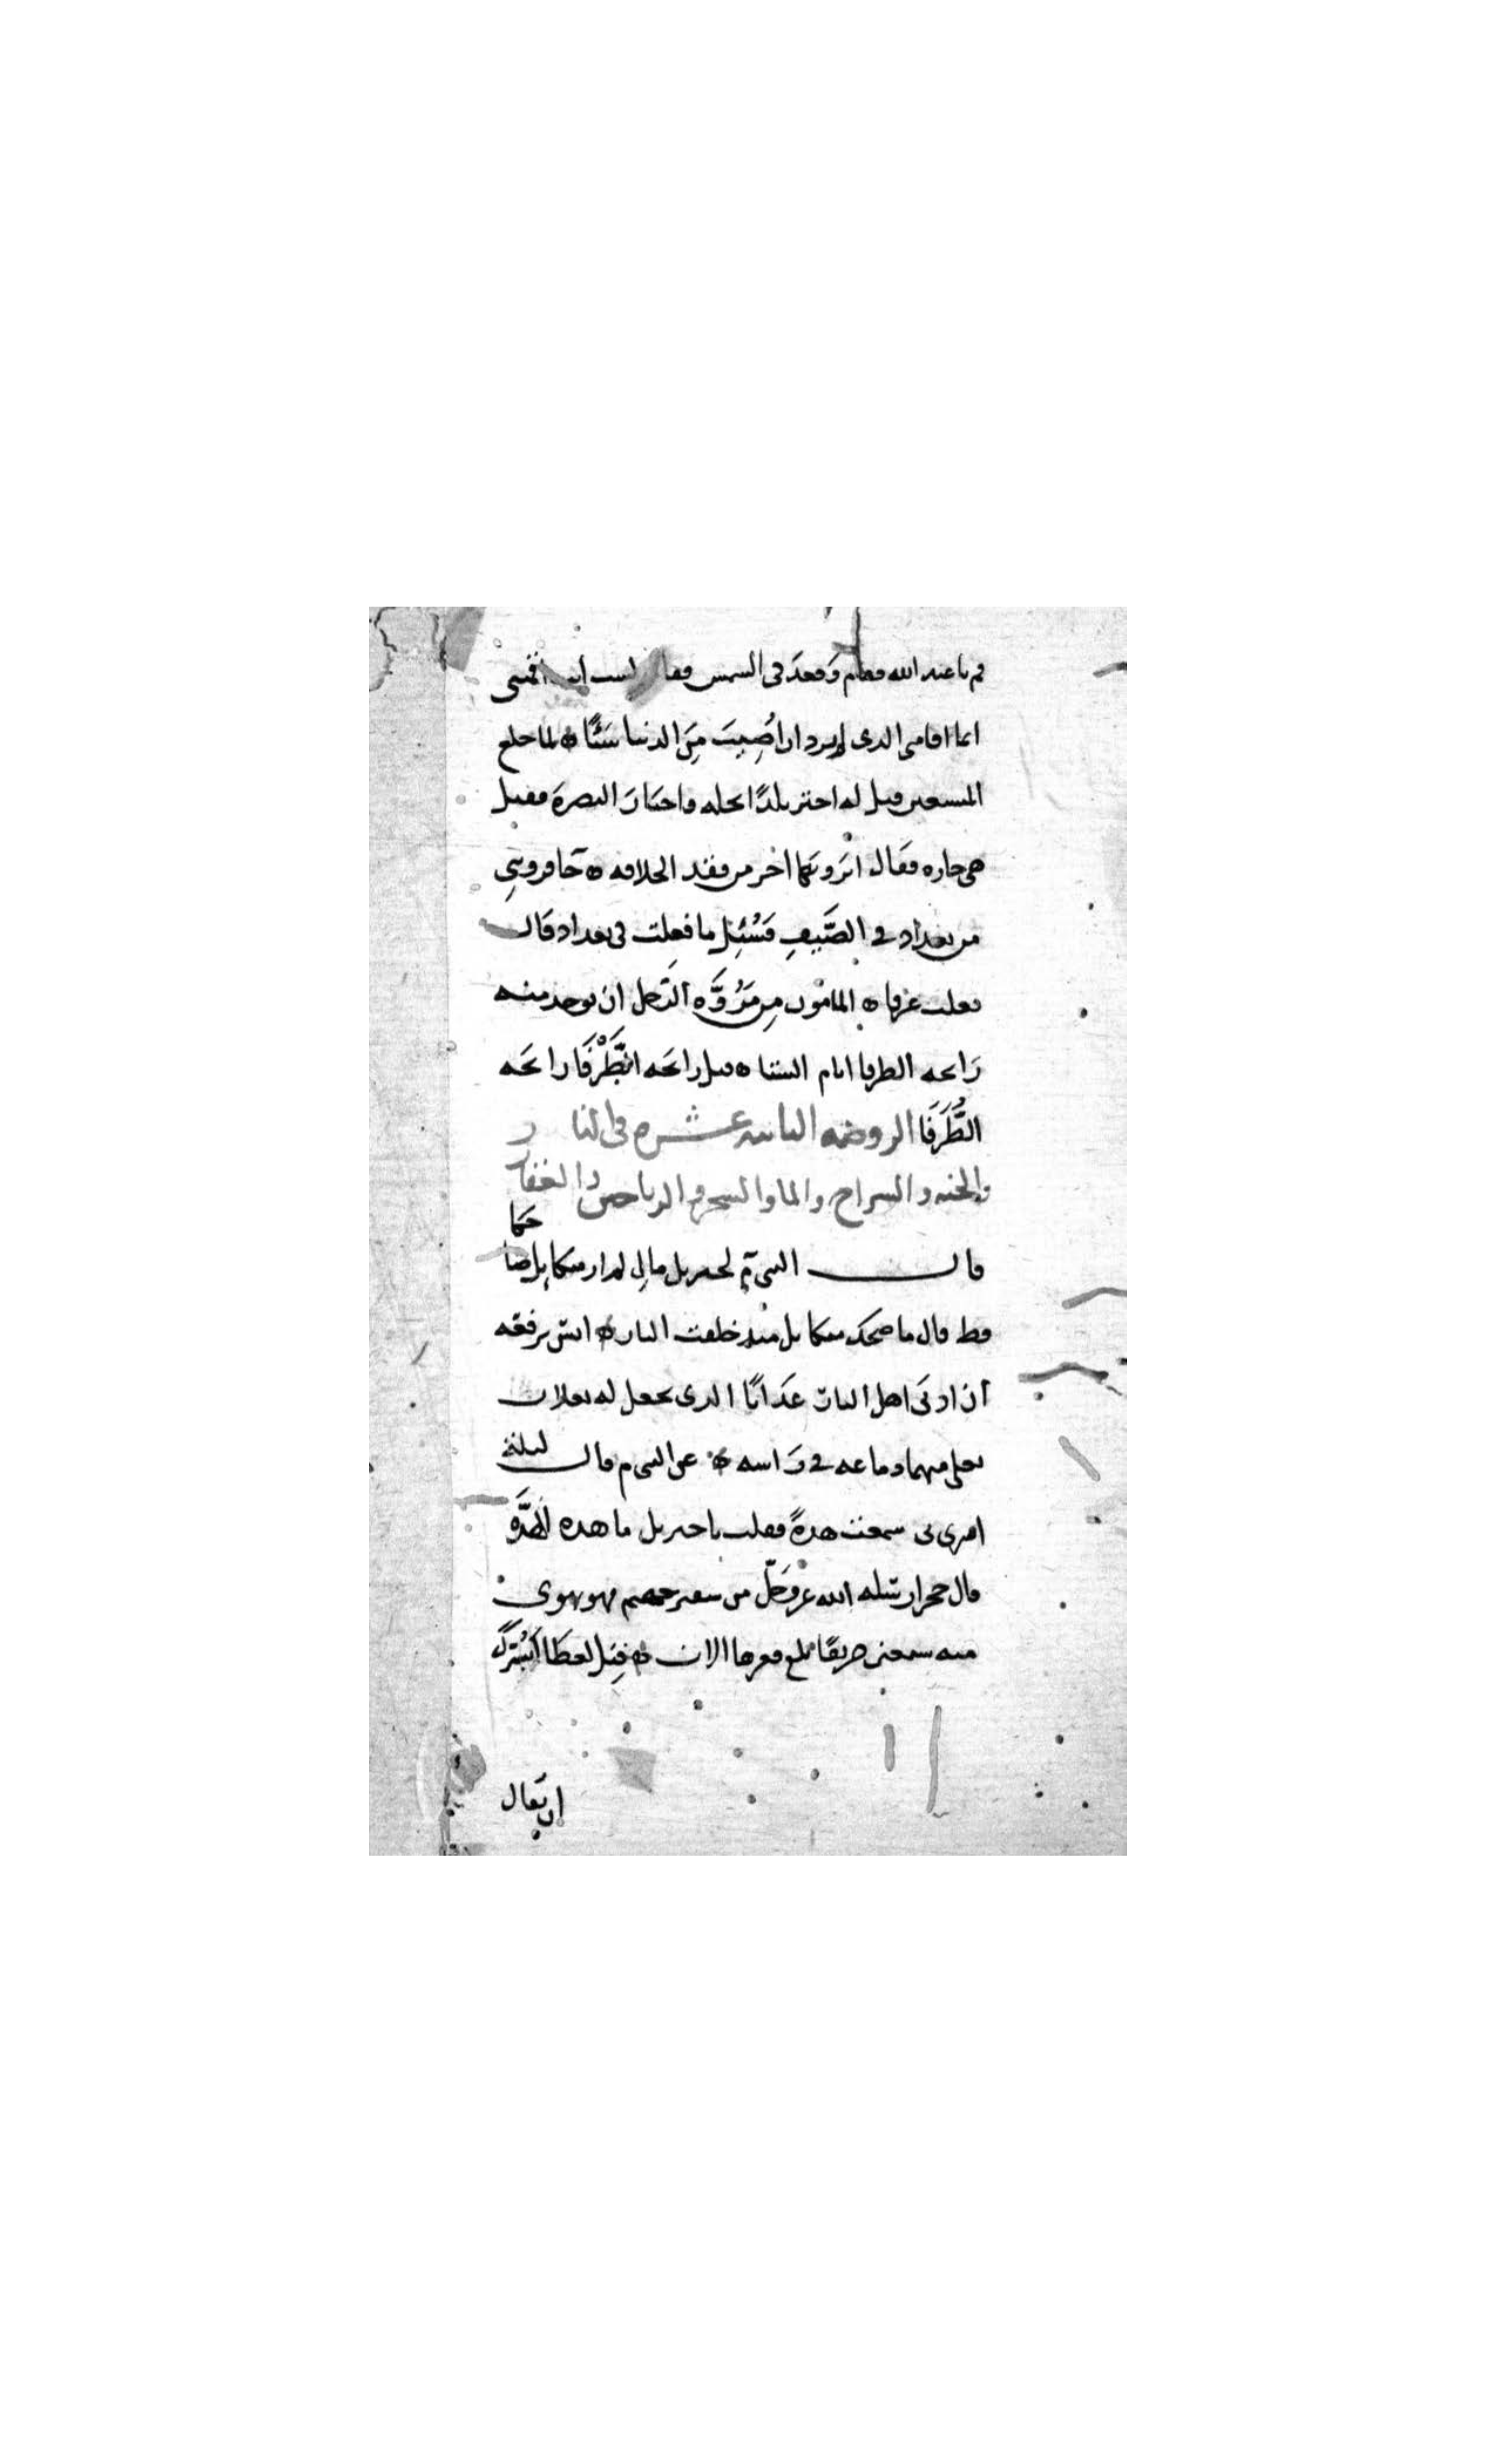 قم يا عبد الله فقام وقعد في الشمس فقال لست أنت أقمتني
انما اقامني الذي لم يرد ان أُصِيبَ مِنَ الدنيا شيئًا ه لما خلع
المستعين قيل له اختر بلدًا تحله واختار البصرة فقيل
هي حاره فقال اترونها احر من فقد الخلافه ه جا قروينِي
من بغداد في الصَّيفِ فسُئِل ما فعلت في بغداد قال
فعلت عرقا ه المامون مِن مُرُوَّه الرَّجل ان يوجد منه
رَائحه الطرفا ايام الشتا ه قيل رائحَه الطَّرْفَا رائحَه
الظُّرَفَا الروضه الثامنه عشره في النار
والجنه والسراج والماء والشجر والرياحين
قال النبي م لجبريل مالي لم ار ميكايل ضاحكا
قط قال ما ضحك ميكايل منذ خلقت النار ه انس يرفعه
أن ادنَى اهل النار عَذابًا الذي يجعل له نعلان
يغلي منهما دماغه في رَاسه ه عن النبي م قال ليلة
اسري بي سمعت هدةً فقلت يا جبريل ما هذه الهدَّة
قال حجر ارسله الله عز وجَلّ من شفير جهنم فهو يهوي
منه سبعين خريفًا بلغ قعرها الان ه قِيل لعطَا أَيسُرّكَ
ان يقال